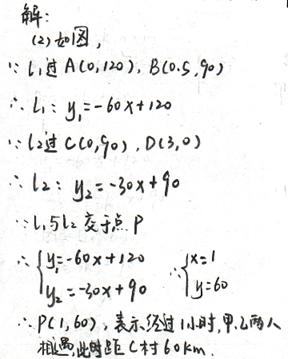 解:
(2)如图,
∵ l₁过 A(0,120), B(0.5,90)
∴ l₁: y₁=-60x+120
∵ l₂过 C(0,90), D(3,0)
∴ l₂: y₂=-30x+90
∵ l₁与l₂交于点 P
∴ {y₁=-60x+120 ∴ {x=1
y₂=-30x+90 y=60
∴ P(1,60), 表示经过1小时,甲、乙两人
相遇,此时距C村60km.